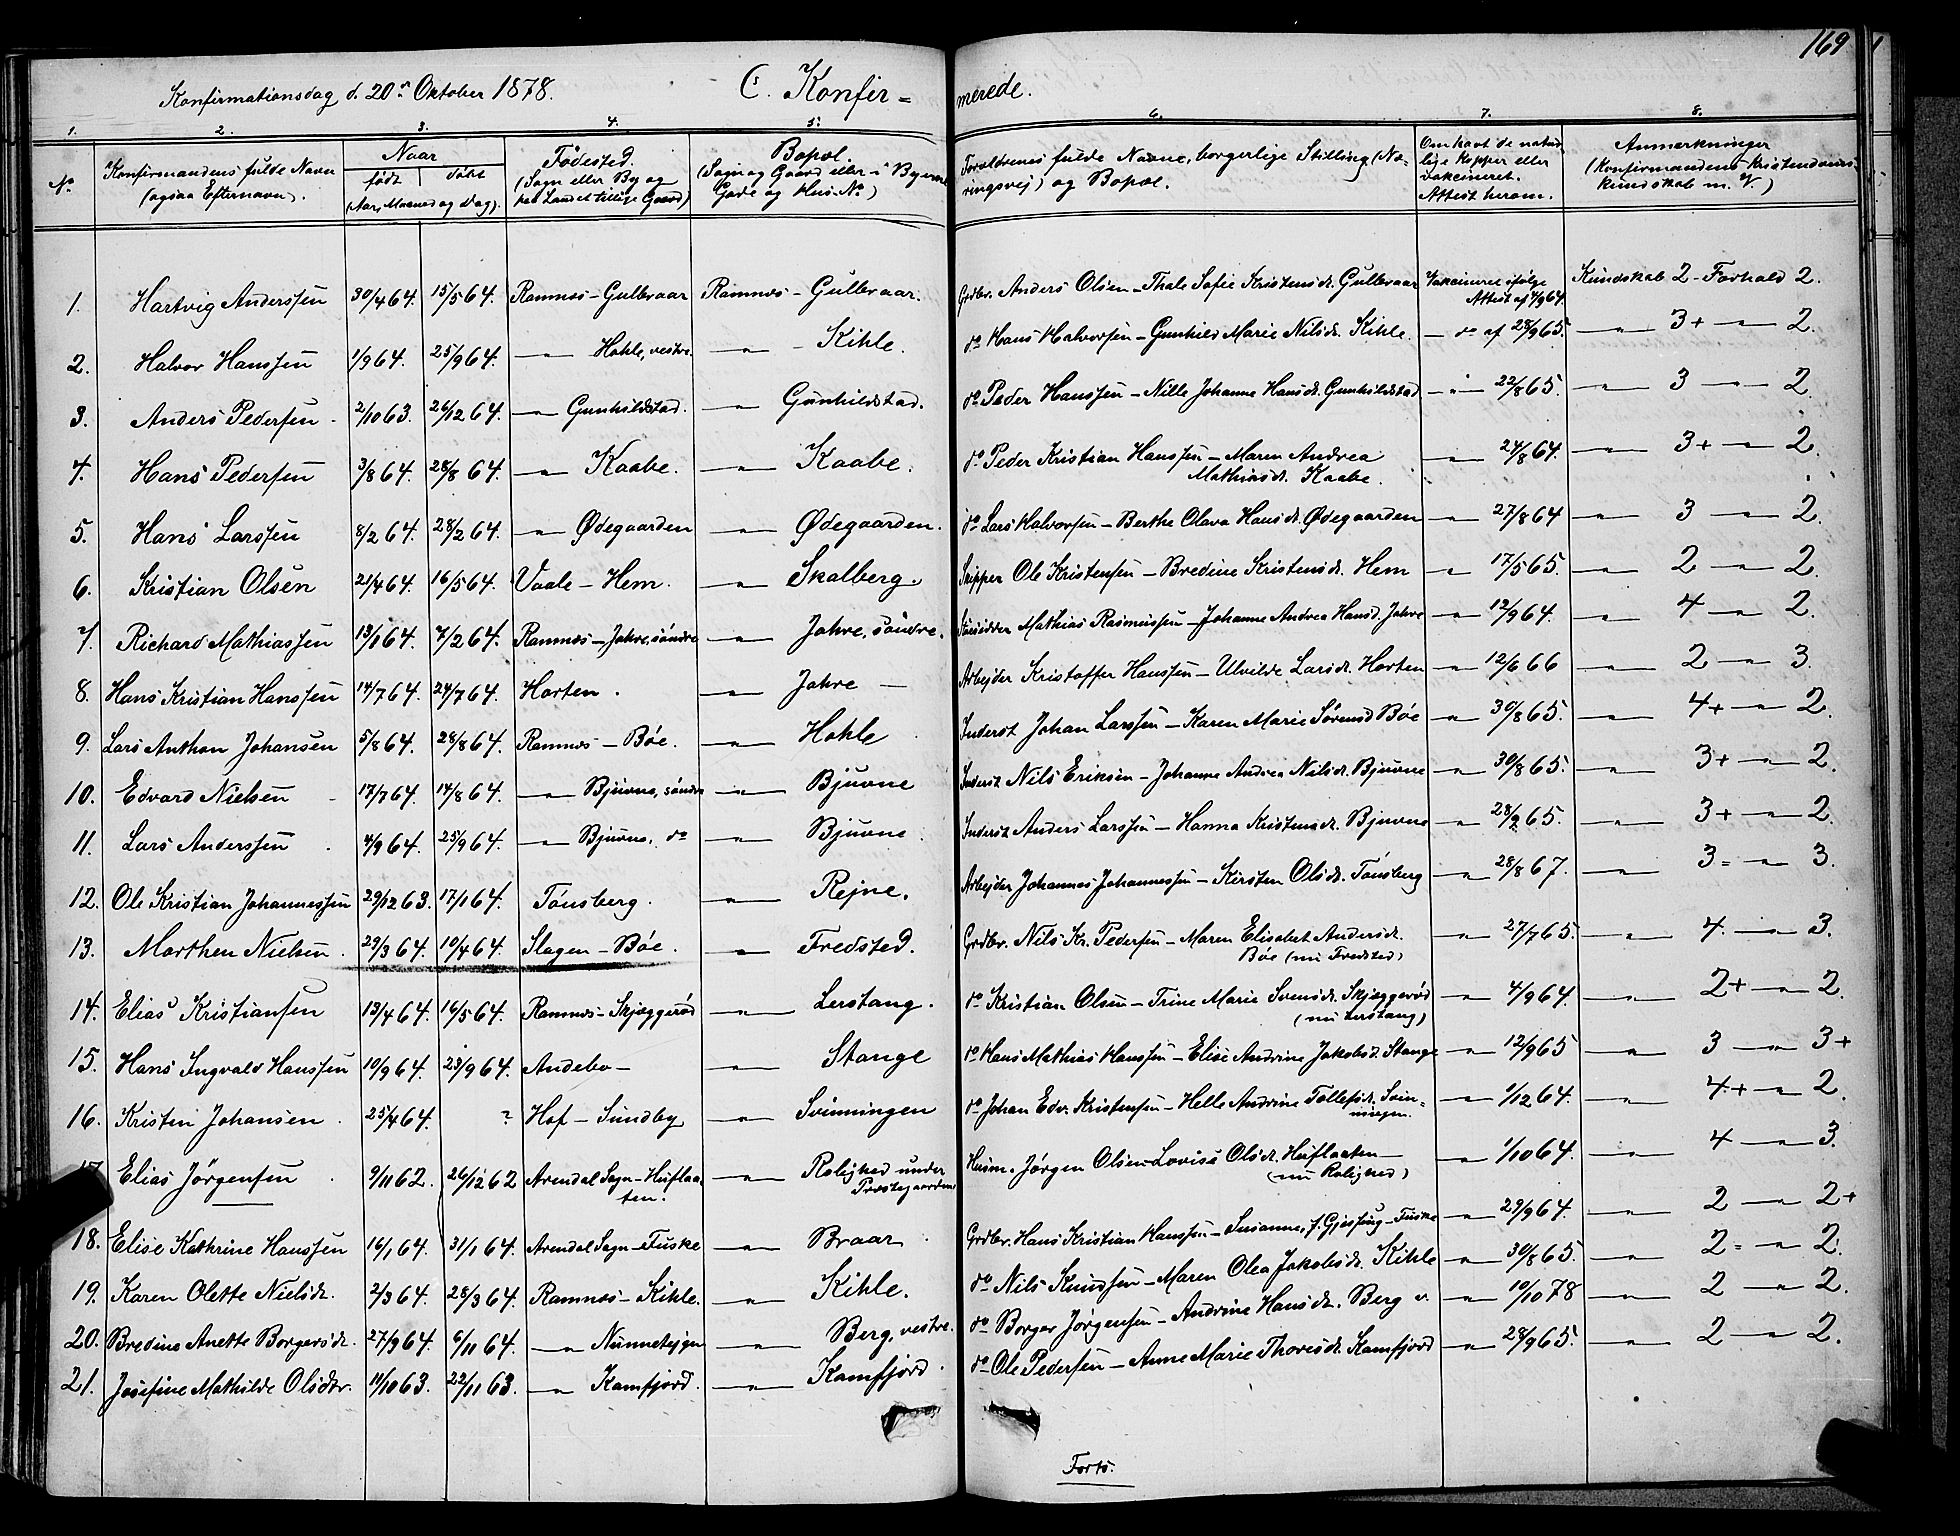 169
Konfirmationsdag d. 20de Oktober 1878. C. Konfir= merede.
1. 2. 3. 4. 5. 6. 7. 8.
No. Konfirmandens fulde Navn (ogsaa Efternavn). Naar født døbt (Aar, Maaned og Dag). Fødested. (Sogn eller By og paa Landet tillige Gaard) Bopæl. (Sogn og Gaard eller i Byerne Gade og Hus No.) Forældrenes fulde Navne, borgerlige Stilling (Næringsvej) og Bopæl. Om havt de naturlige Kopper eller vakcineret. Attest herom. Anmærkninger (Konfirmandens Kristendomskundskab m. V.)
1. Hartvig Anderssen 30/4 64. 15/5 64. Ramnæs - Gulbraar Ramnæs - Gulbraar. Grdbr. Anders Olsen - Thale Sofie Kristensdr. Gulbraar Vakcineret ifølge Attest af 4/9 64. Kundskab 2 - Forhold 2.
2. Halvor Hanssen 1/9 64. 25/9 64. — " — Hohle, vestre. — " — Kihle. do Hans Halvorsen - Gunhild Marie Nilsdr. Kihle. — do af 28/9 65. — " — 3+ — " — 2.
3. Anders Pedersen 2/10 63. 26/12 64. — " — Gunhildstad. — " — Gunhildstad. do Peder Hanssen - Nille Johanne Hansdr. Gunhildstad — " — 22/8 65. — " — 3 — " — 2.
4. Hans Pedersen 3/8 64. 28/8 64. — " — Kaabe. — " — Kaabe. do Peder Kristian Hanssen - Maren Andrea Mathiasdr. Kaabe. — " — 24/8 64. — " — 3+ — " — 2.
5. Hans Larssen 8/2 64. 28/2 64. — " — Ødegaarden — " — Ødegaarden. do Lars Halvorsen - Berthe Olava Hansdr. Ødegaarden — " — 27/8 64 — " — 3 — " — 2.
6. Kristian Olsen 21/4 64. 16/5 64. Vaale - Hem. — " — Skalberg. Skipper Ole Kristensen - Bredine Kristensdr. Hem — " — 17/5 65. — " — 2 — " — 2.
7. Richard Mathiassen 13/1 64. 7/2 64. Ramnæs - Jahre, søndre — " — Jahre, søndre. Mathias Rasmussen - Johanne Andrea Hansd. Jahre — " — 12/9 64. — " — 4 — " — 2.
8. Hans Kristian Hanssen 14/7 64. 24/7 64. Horten. — " — Jahre — Arbejder Kristoffer Hanssen - Ulvilde Larsdr. Horten — " — 12/6 66 — " — 2 — " — 3.
9. Lars Anthon Johansen 5/8 64. 28/8 64. Ramnæs - Bøe. — " — Hohle Inderst Johan Larssen - Karen Marie Sørensd Bøe — " — 30/8 65. — " — 4+ — " — 2.
10. Edvard Nielsen 17/7 64. 14/8 64. — " — Bjuvne, søndre — " — Bjuvne Inderst Nils Eriksen - Johanne Andrea Nilsdr. Bjuvne — " — 30/8 65. — " — 3+ — " — 2.
11. Lars Anderssen 4/9 64. 25/9 64. — " — Bjuvne, do — " — Bjuvne Inderst Anders Larssen - Hanna Kristensdr. Bjuvne — " — 28/9 65. — " — 3+ — " — 2.
12. Ole Kristian Johannessen 29/12 63. 17/1 64. Tønsberg. — " — Rejne. Arbejder Johannes Johannessen - Kirsten Olsdr. Tønsberg — " — 28/8 67. — " — 3= — " — 3.
13. Marthen Nielsen. 29/3 64. 10/4 64. Slagen - Bøe. — " — Fredsted. Grdbr. Nils Kr. Pedersen - Maren Elisabet Andersdr. Bøe (nu Fredsted) — " — 27/7 65. — " — 4. — " — 3.
14. Elias Kristiansen 13/4 64. 16/5 64. Ramnæs - Skjæggerød — " — Lerstang. do Kristian Olsen - Trine Marie Svensdr. Skjæggerød (nu Lerstang) — " — 4/9 64. — " — 2+ — " — 2.
15. Hans Ingvald Hanssen 10/9 64. 23/9 64. Andebo - — " — Stange do Hans Mathias Hanssen - Elise Andrine Jakobsd. Stange — " — 12/9 65 — " — 3 — " — 3+
16. Kristen Johansen. 25/4 64. ? Hof - Sundby — " — Svinningen do Johan Edv. Kristensen - Helle Andrine Tollefsdr. Svinningen. — " — 1/12 64. — " — 4+ — " — 2.
17. Elias Jørgensen 9/11 62. 26/12 62 Arendal Sogn - Huflaaten. — " — Rolighed under Præstegaarden Husm. Jørgen Olsen - Lovise Olsdr. Huflaaten - (nu Rolighed) — " — 1/10 64. — " — 4 — " — 3.
18. Elise Kathrine Hanssen 16/1 64. 31/1 64. Arendal Sogn - Fuske — " — Braar Grdbr. Hans Kristian Hanssen - Susanne, f. Gjessing - Fuske — " — 29/9 64. — " — 2 — " — 2+
19. Karen Olette Nielsdr. 2/3 64. 28/3 64. Ramnæs - Kihle. — " — Kihle. do Nils Knudsen - Maren Olea Jakobsdr. Kihle — " — 30/8 65. — " — 2= — " — 2.
20. Bredine Anette Borgersdr. 27/9 64. 6/11 64. — " — — " — Berg, vestre. do Borger Jørgensen - Andrine Hansdr. Berg v. — " — 10/10 78 — " — 2 — " — 2.
21. Josefine Mathilde Olsdtr. 11/10 63. 22/11 63. — " — Kamfjord. — " — Kamfjord. do Ole Pedersen - Anne Marie Thoresdr. Kamfjord — " — 28/9 65. — " — 2 — " — 2.
Forts.